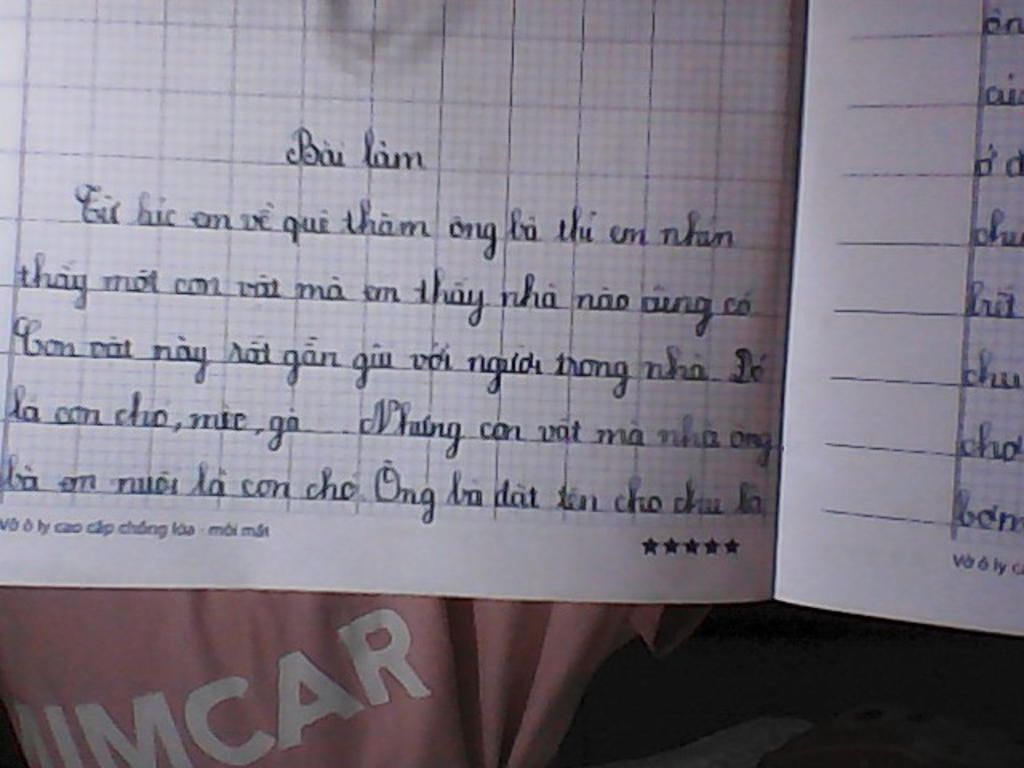 Bài làm
Từ lúc em về quê thăm ông bà thì em nhận
thấy một con vật mà em thấy nhà nào cũng có
Con vật này rất gần gũi với người trong nhà Đó
là con chó, mèo, gà Nhưng con vật mà nhà ông
bà em nuôi là con chó Ông bà đặt tên cho chú là
Vở ô ly cao cấp chống lóa - mỏi mắt
★★★★★
ở
chú
chú
Vở ô ly
MIMCAR